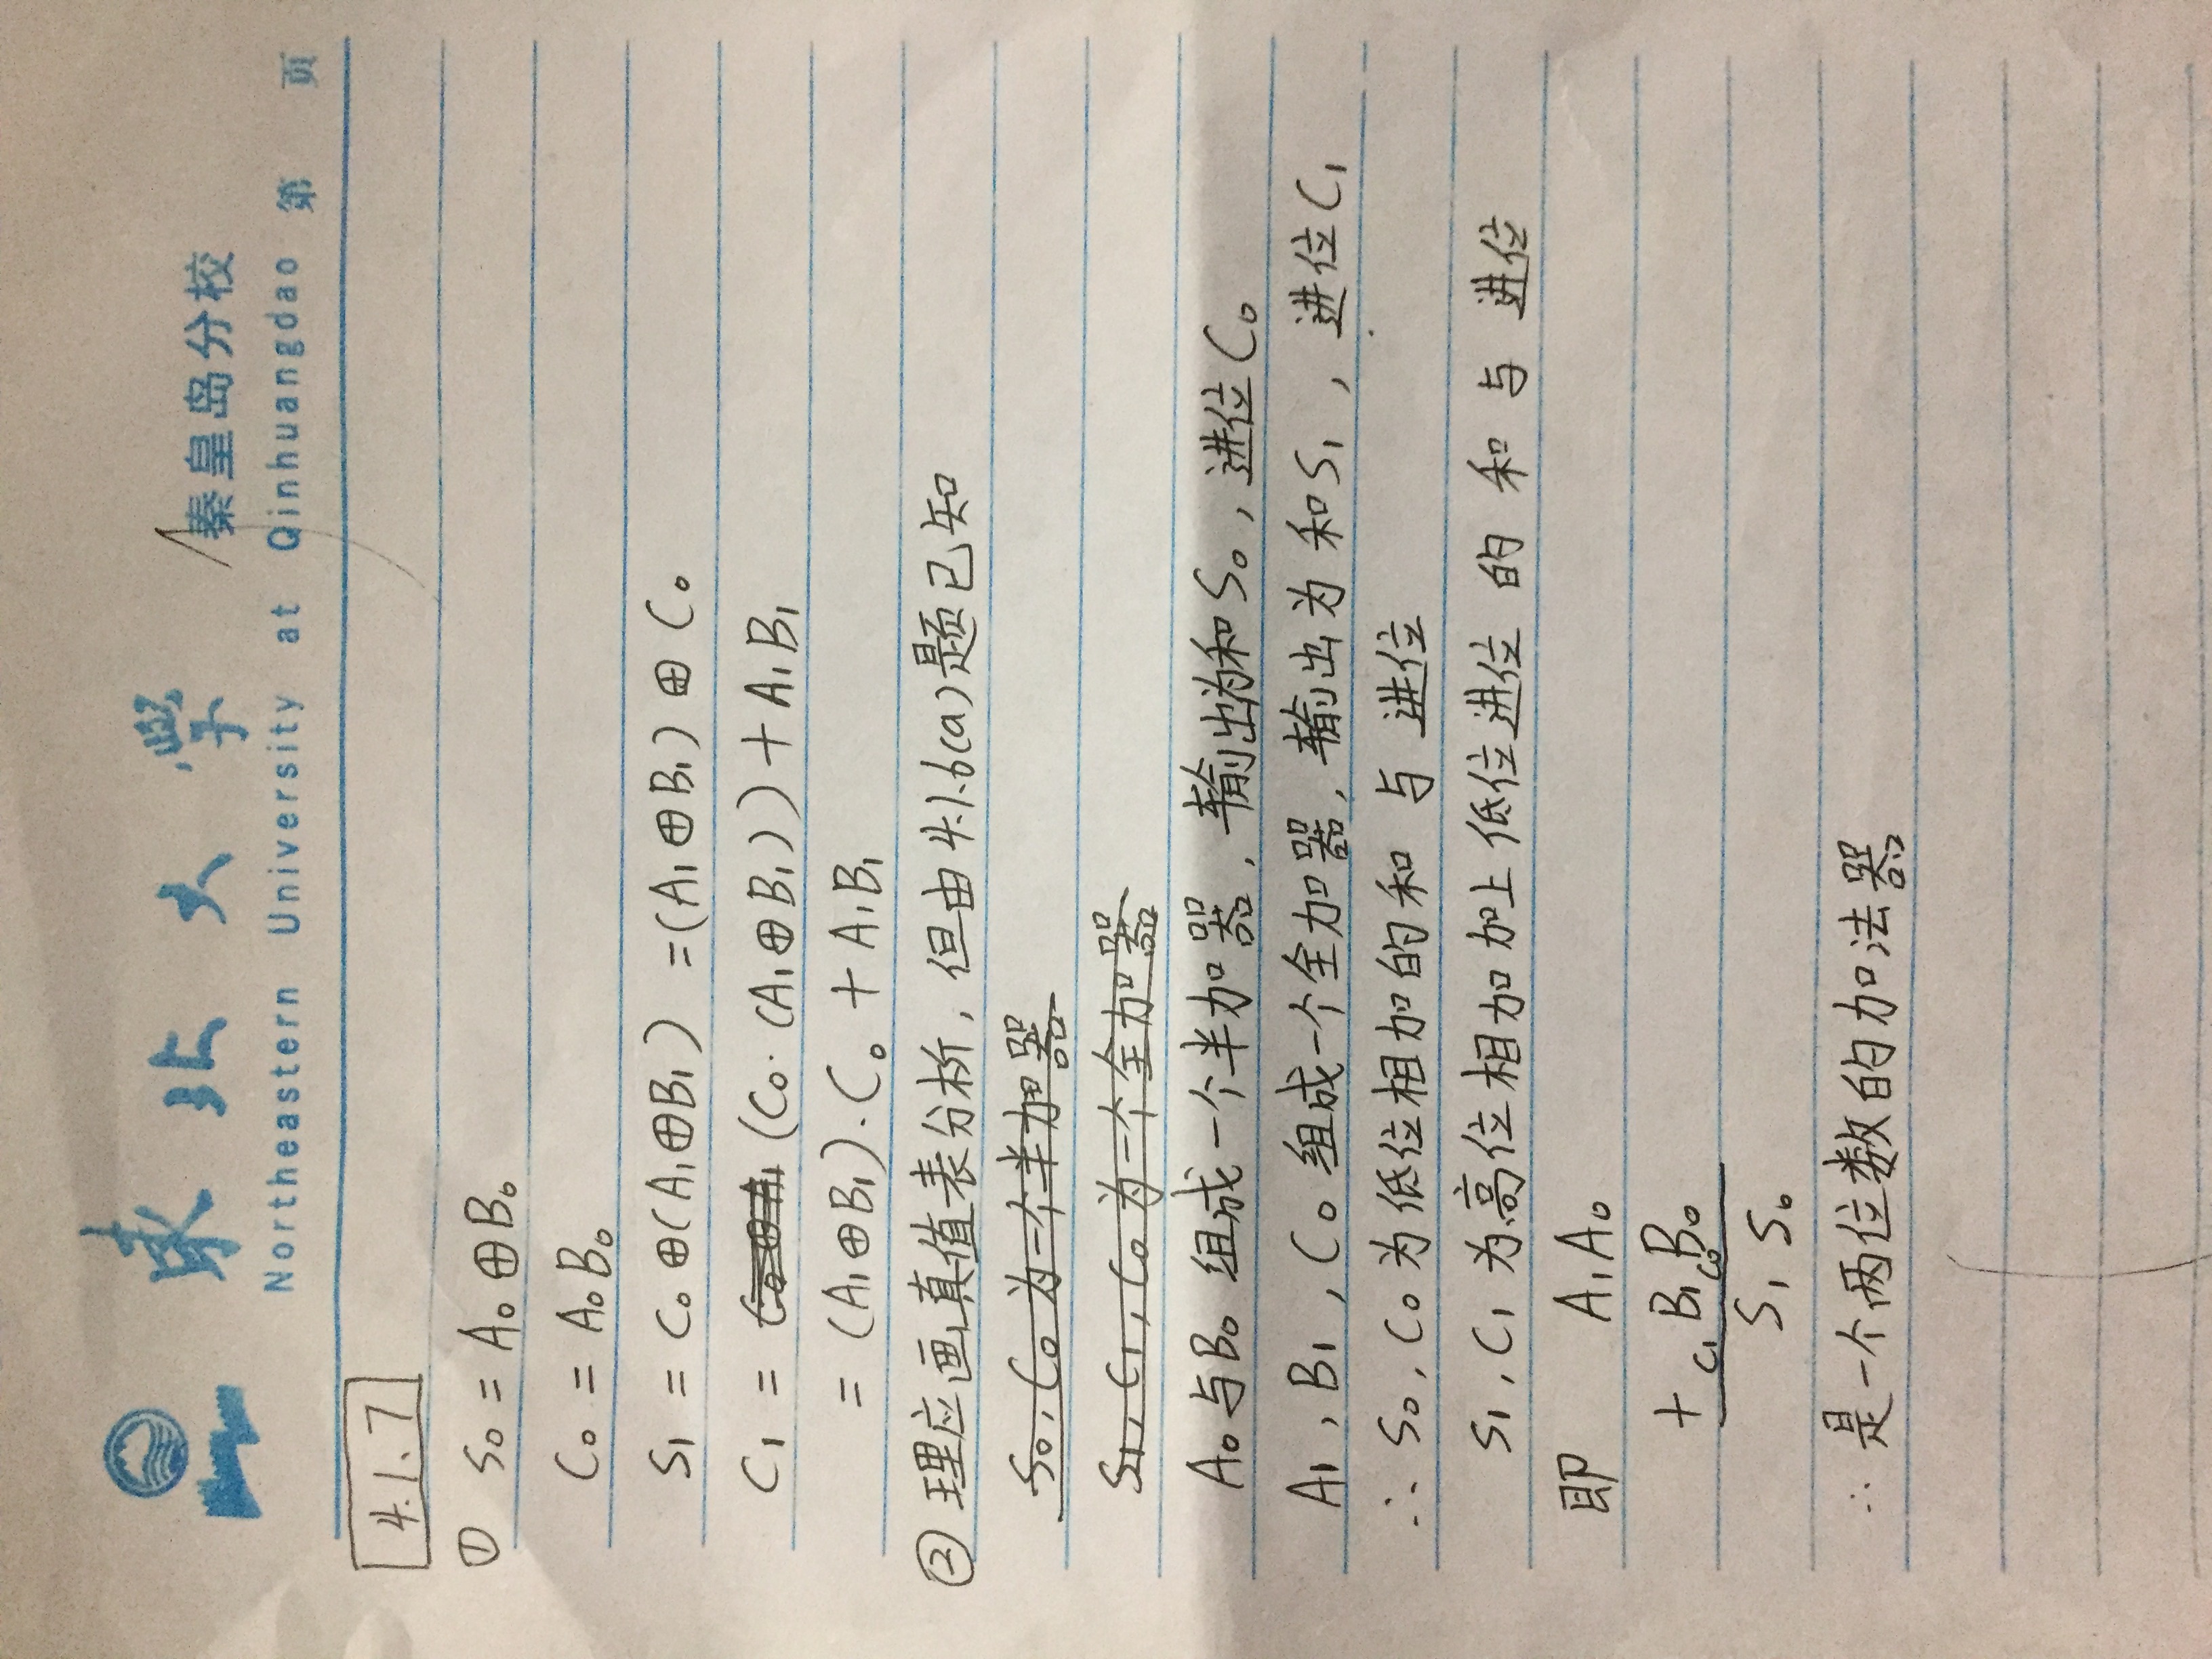 東北大學 秦皇岛分校
Northeastern University at Qinhuangdao 第 页
4.1.7
① S₀ = A₀⊕B₀
C₀ = A₀B₀
S₁ = C₀⊕(A₁⊕B₁) =(A₁⊕B₁)⊕C₀
C₁ = C₀⊕A₁ (C₀·(A₁⊕B₁))+A₁B₁
= (A₁⊕B₁)·C₀ + A₁B₁
② 理应画真值表分析, 但由4.1.6(a)题已知
S₀, C₀ 为一个半加器
S₁, C₁, C₀ 为一个全加器
A₀与B₀ 组成一个半加器, 输出为和S₀, 进位C₀
A₁, B₁, C₀ 组成一个全加器, 输出为 和S₁, 进位C₁
∴ S₀, C₀为低位相加的和 与 进位
S₁, C₁ 为高位相加加上低位进位 的 和 与 进位
即 A₁A₀
+ C₁ B₁ C₀ B₀
S₁ S₀
∴ 是一个两位数的加法器